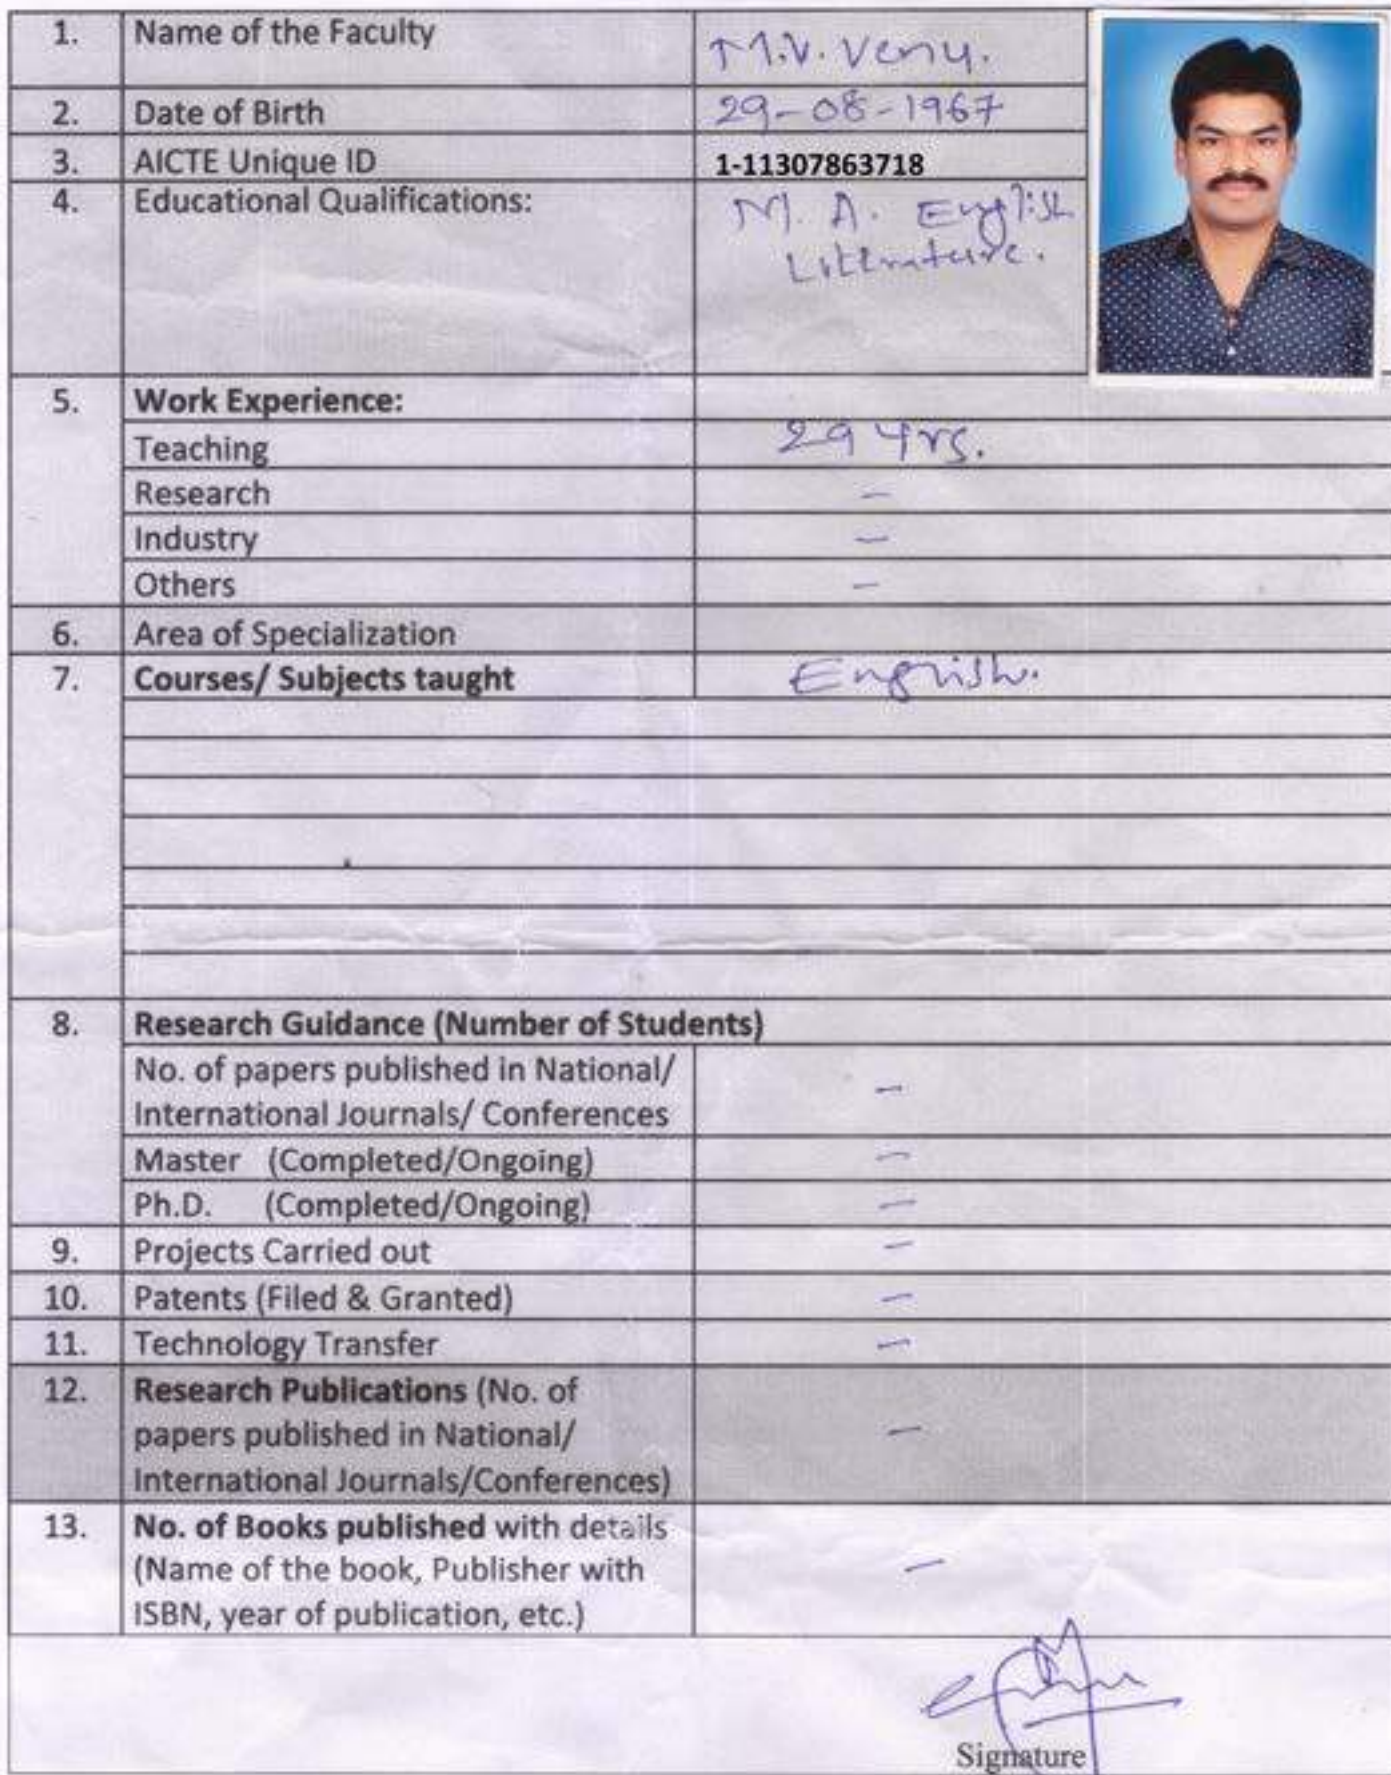 1. Name of the Faculty M.V. Venu.
2. Date of Birth 29-08-1967
3. AICTE Unique ID 1-11307863718
4. Educational Qualifications: M. A. English
Litterature.
5. Work Experience:
Teaching 29 Yrs.
Research -
Industry -
Others -
6. Area of Specialization
7. Courses/ Subjects taught English.
8. Research Guidance (Number of Students)
No. of papers published in National/
International Journals/ Conferences -
Master (Completed/Ongoing) -
Ph.D. (Completed/Ongoing) -
9. Projects Carried out -
10. Patents (Filed & Granted) -
11. Technology Transfer -
12. Research Publications (No. of
papers published in National/ -
International Journals/Conferences)
13. No. of Books published with details
(Name of the book, Publisher with -
ISBN, year of publication, etc.)
Signature